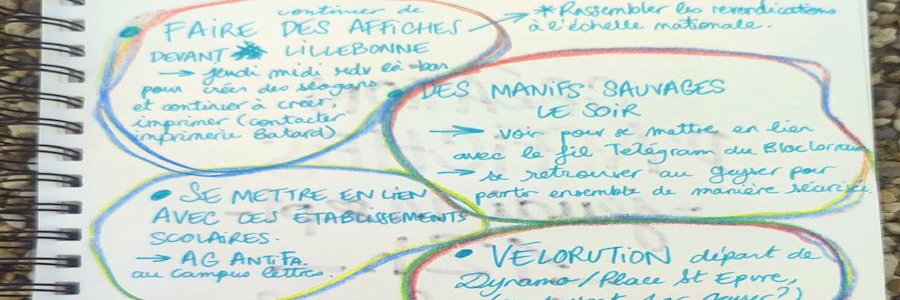 continuer de
• FAIRE DES AFFICHES
DEVANT LILLEBONNE
→ jeudi midi rdv là-bas
pour créer des slogans
et continuer à créer,
imprimer (contacter
imprimerie Batard)
→ * Rassembler les revendications
à l'échelle nationale.
• DES MANIFS SAUVAGES
LE SOIR
→ voir pour se mettre en lien
avec le fil Télégram du Bloc Lorrain
→ se retrouver au geyser pour
partir ensemble de manière sécurisée
• SE METTRE EN LIEN
AVEC DES ETABLISSEMENTS
SCOLAIRES.
→ AG ANTIFA.
au campus lettres.
• VELORUTION départ de
Dynamo/Place St Epvre,